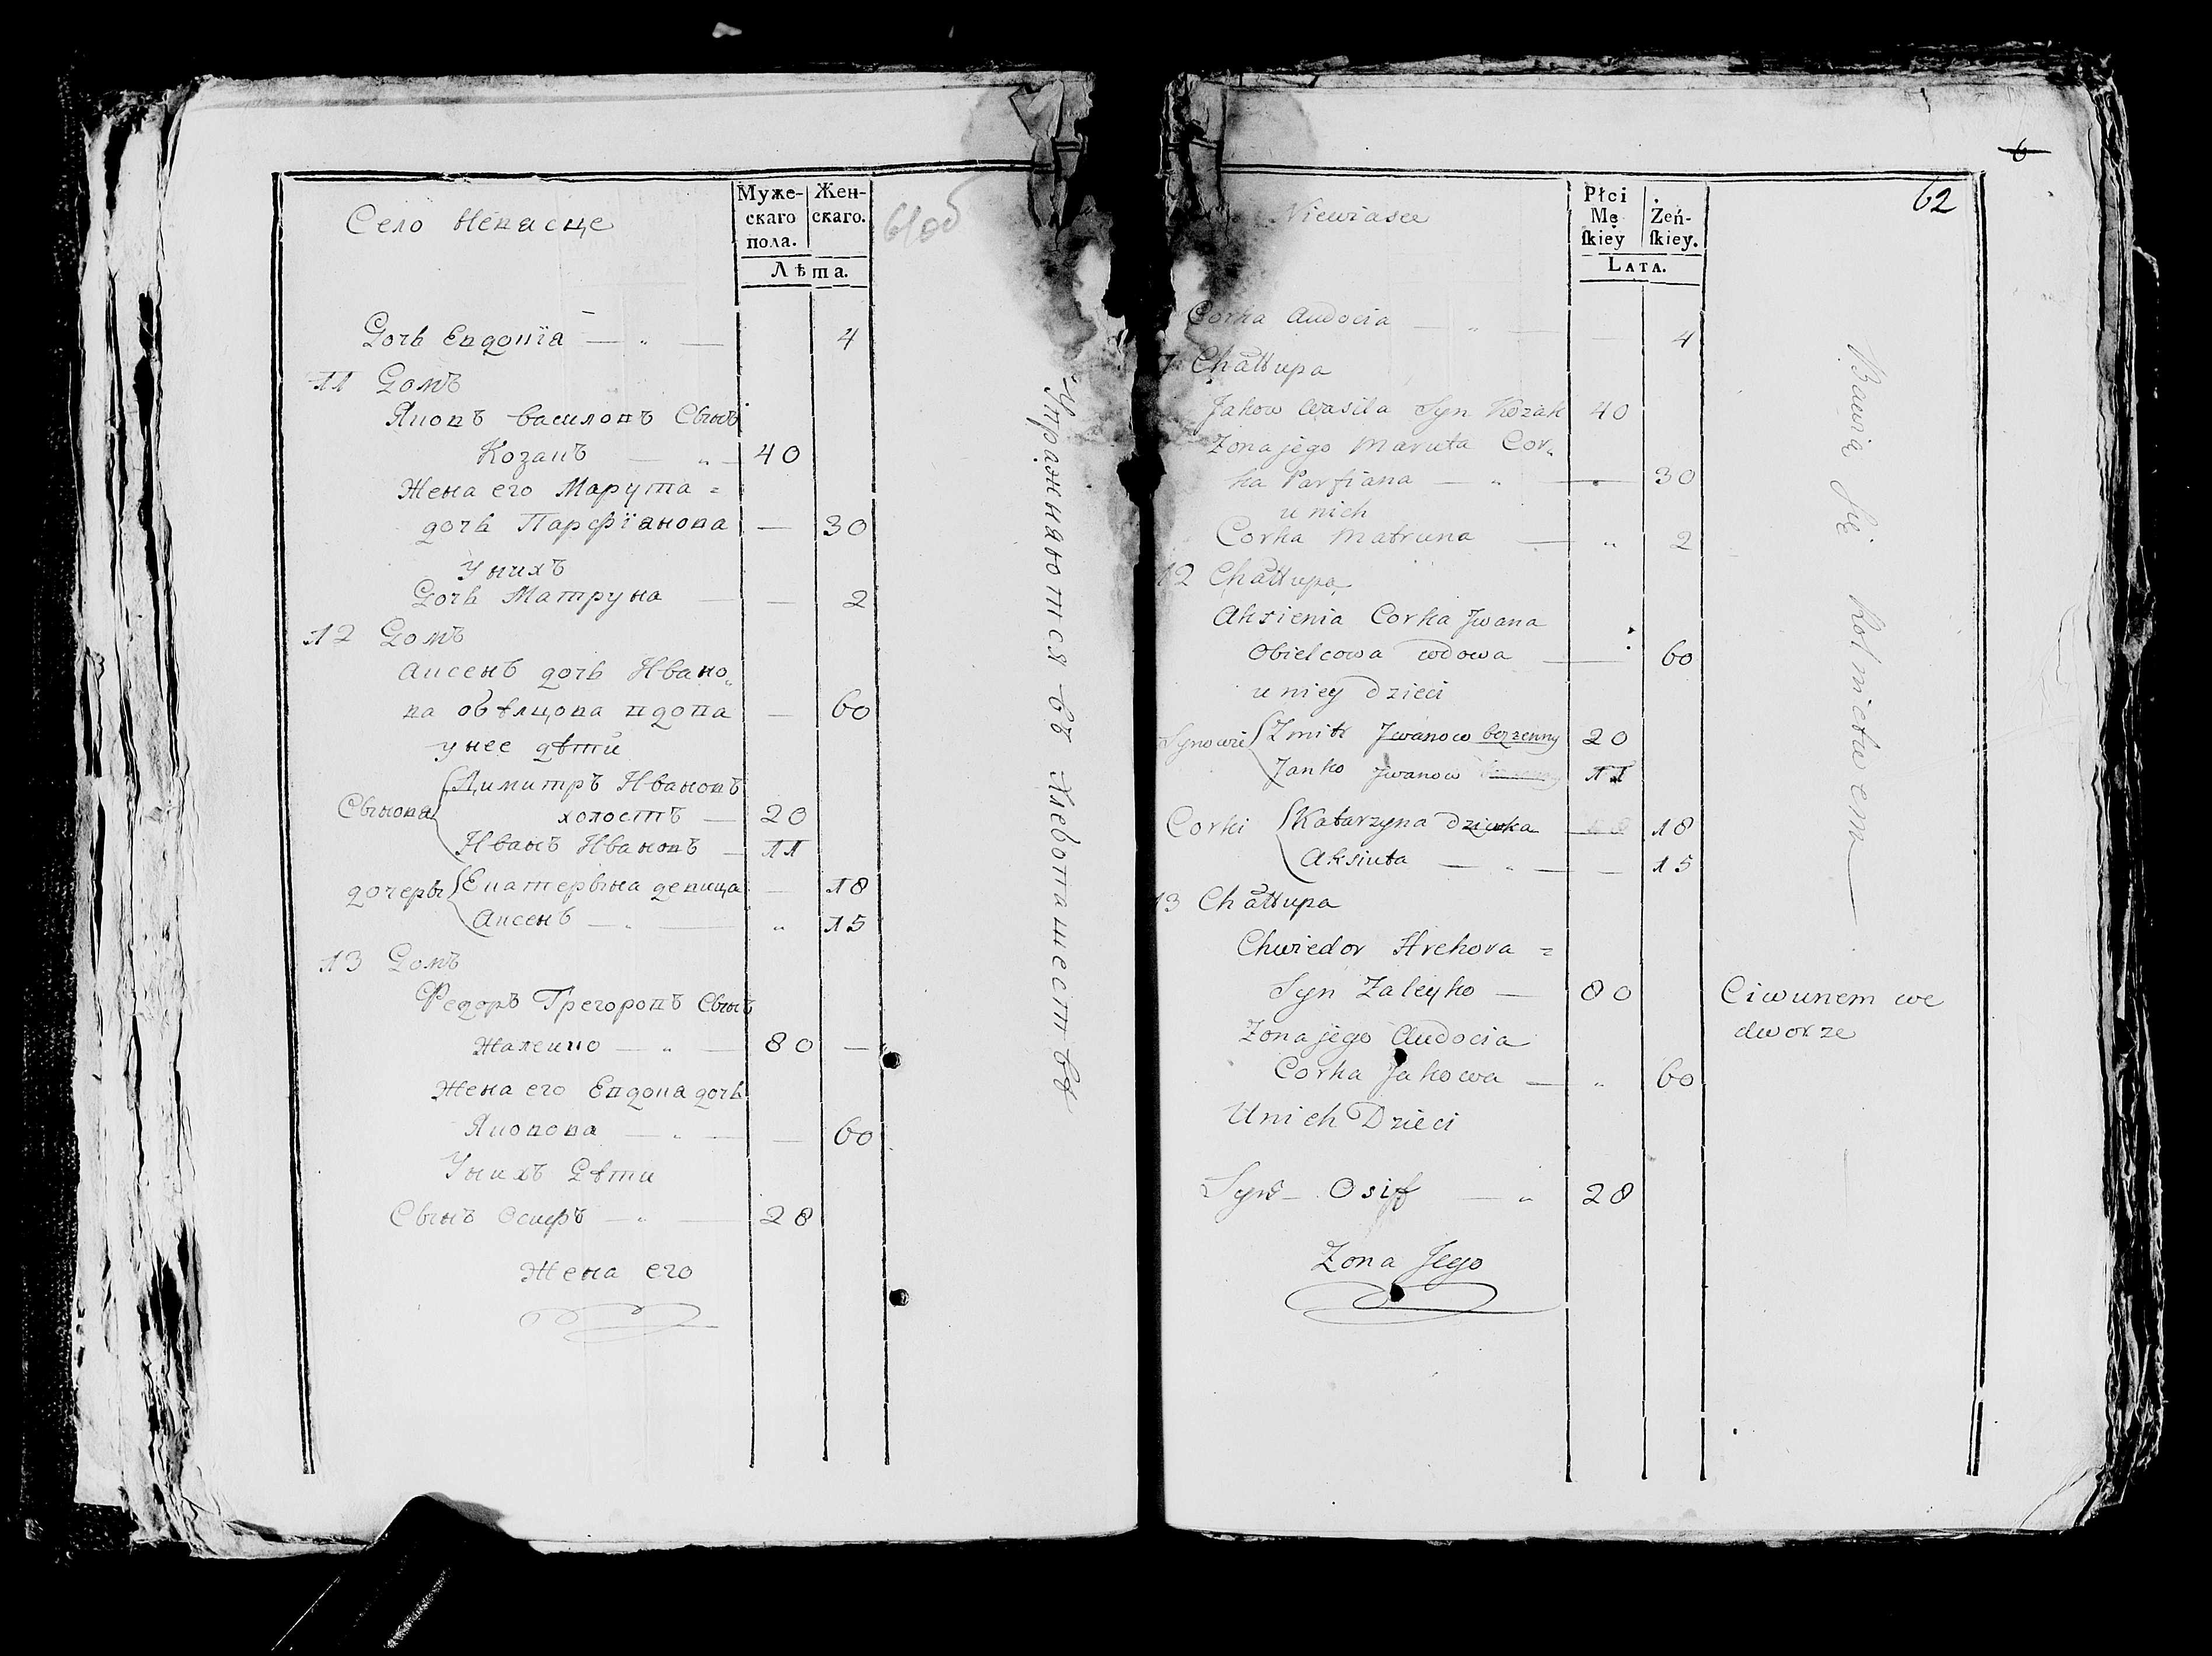 Село Невясце
Муже-
скаго
пола.
Жен-
скаго.
Лѣта.
61об
Дочь Евдокїя — „ — 4
11 Домъ
Яковъ Василовъ Сынъ
Козакъ — „ — 40
Жена его Марута =
дочь Парфїянова — 30
У нихъ
Дочь Матруна — — 2
12 Домъ
Аксень дочь Ивано„
ва обѣлцова вдова — 60
у нее дѣти
Сынова { Димитръ Ивановъ
холостъ — 20
Иванъ Ивановъ — 11
дочеры { Екатерына девица — 18
Аксень — „ — „ 15
13 Домъ
Федоръ Грегоровъ Сынъ
Жалейко — „ — 80 —
Жена его Евдока дочь
Яковова — „ — — 60
У нихъ Дѣти
Сынъ Осифъ — „ — 28
Жена его
Упражняются въ хлебопашествѣ
6
62
Niewiasce
Płci
Mę
ſkiey
Żeń-
ſkiey.
LATA.
Corka Audocia — „ — — 4
Chałłupa
Jakow Wasila Syn Kozak 40
Zona jego Maruta Cor„
ka Parfiana — „ — 30
u nich
Corka Matruna — „ 2
12 Chałłupa
Aksienia Corka Jwana
Obielcowa wdowa — 60
u niey dzieci
Synowie { Zmitr Jwanow bezzenny 20
Janko Jwanow 11
Corki { Katarzyna Dziewka — 18
Aksiuta — „ — — 15
13 Chałłupa
Chwiedor Hrehora =
Syn Zaleyko — 80
Ciwunem we
dworze
Zona jego Audocia
Corka Jakowa — „ 60
U nich Dzieci
Syn — Osiff — „ 28
Zona Jego
Bawią się rolnictwem —